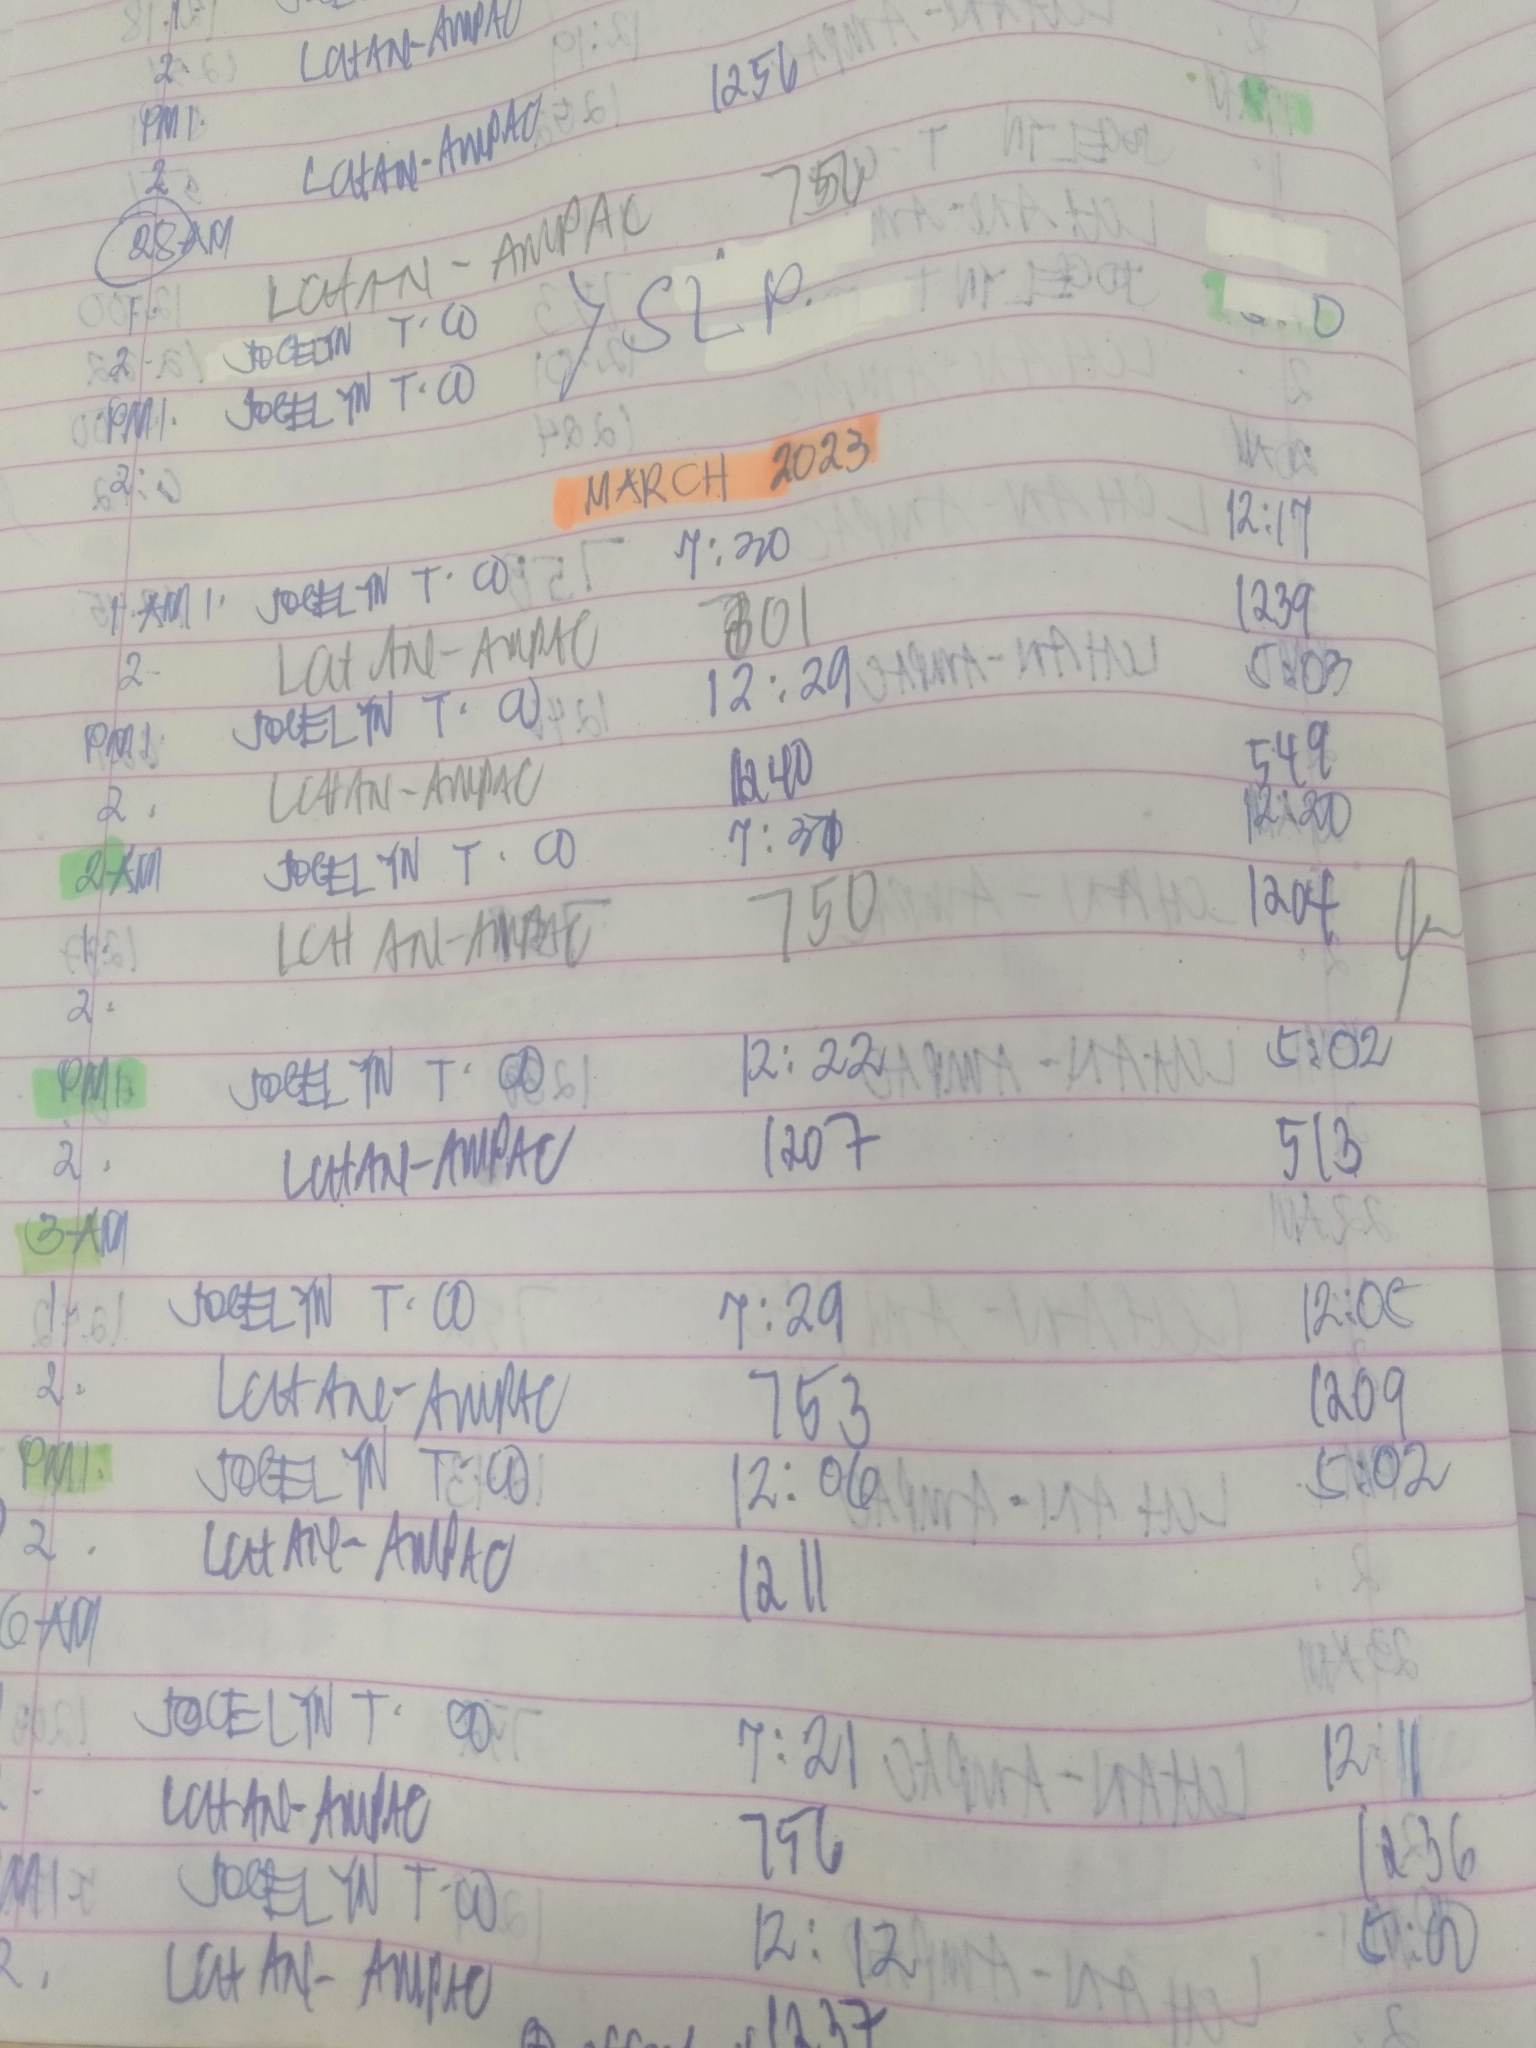 2. LCHAN-AMPAC
PM1. 1256
2 LCHAN-AMPAC
28 AM
1. LCHAN-AMPAC 750
2. JOCELYN T. CO YSLP.
PM1. JOCELYN T. CO
2.
MARCH 2023
1 AM 1. JOCELYN T. CO 7:30 12:17
2. LCHAN-AMPAC 801 1239
PM1. JOCELYN T. CO 12:29 5:03
2. LCHAN-AMPAC 1240 549
2 AM JOCELYN T. CO 7:31 12:20
1. LCHAN-AMPAC 750 1204
2.
PM1. JOCELYN T. CO 12:22 5:02
2. LCHAN-AMPAC 1207 513
3 AM
1. JOCELYN T. CO 7:29 12:05
2. LCHAN-AMPAC 753 1209
PM1. JOCELYN T. CO 12:06 5:02
2. LCHAN-AMPAC 1211
6 AM
JOCELYN T. CO 7:21 12:11
LCHAN-AMPAC 756 1236
M1. JOCELYN T. CO 12:12 5:00
2. LCHAN-AMPAC 1237